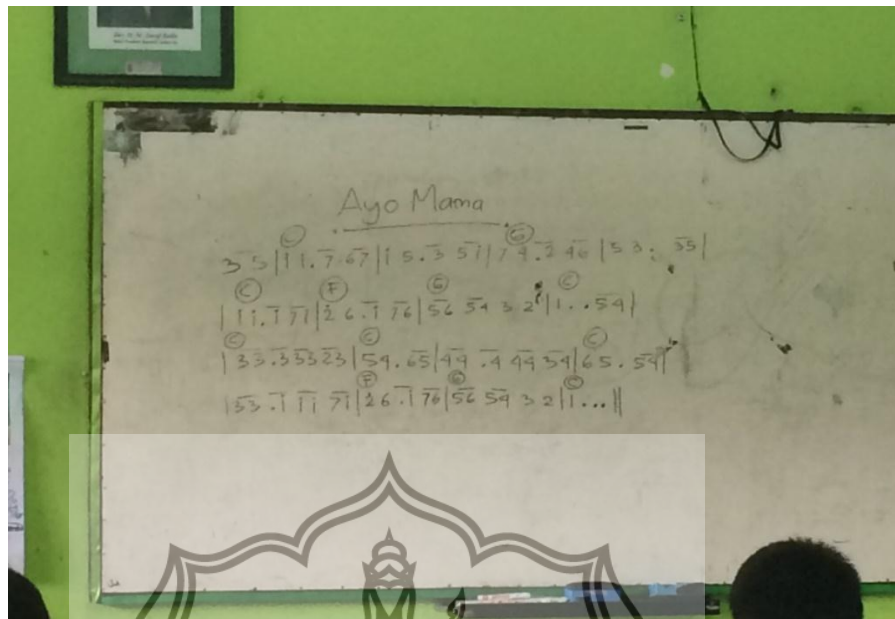 Ayo Mama
C G
3 5 | 1 1 . 7 67 | 1 5 . 3 51 | 7 4 . 2 46 | 5 3 . 35 |
C F G C
| 1 1 . 1 71 | 2 6 . 1 76 | 56 54 3 2 | 1 . . 54 |
C C C
| 33 . 3 33 23 | 54 . 65 | 44 . 4 44 34 | 65 . 54 |
F G C
| 33 . 1 11 71 | 2 6 . 1 76 | 56 54 3 2 | 1 . . . ||